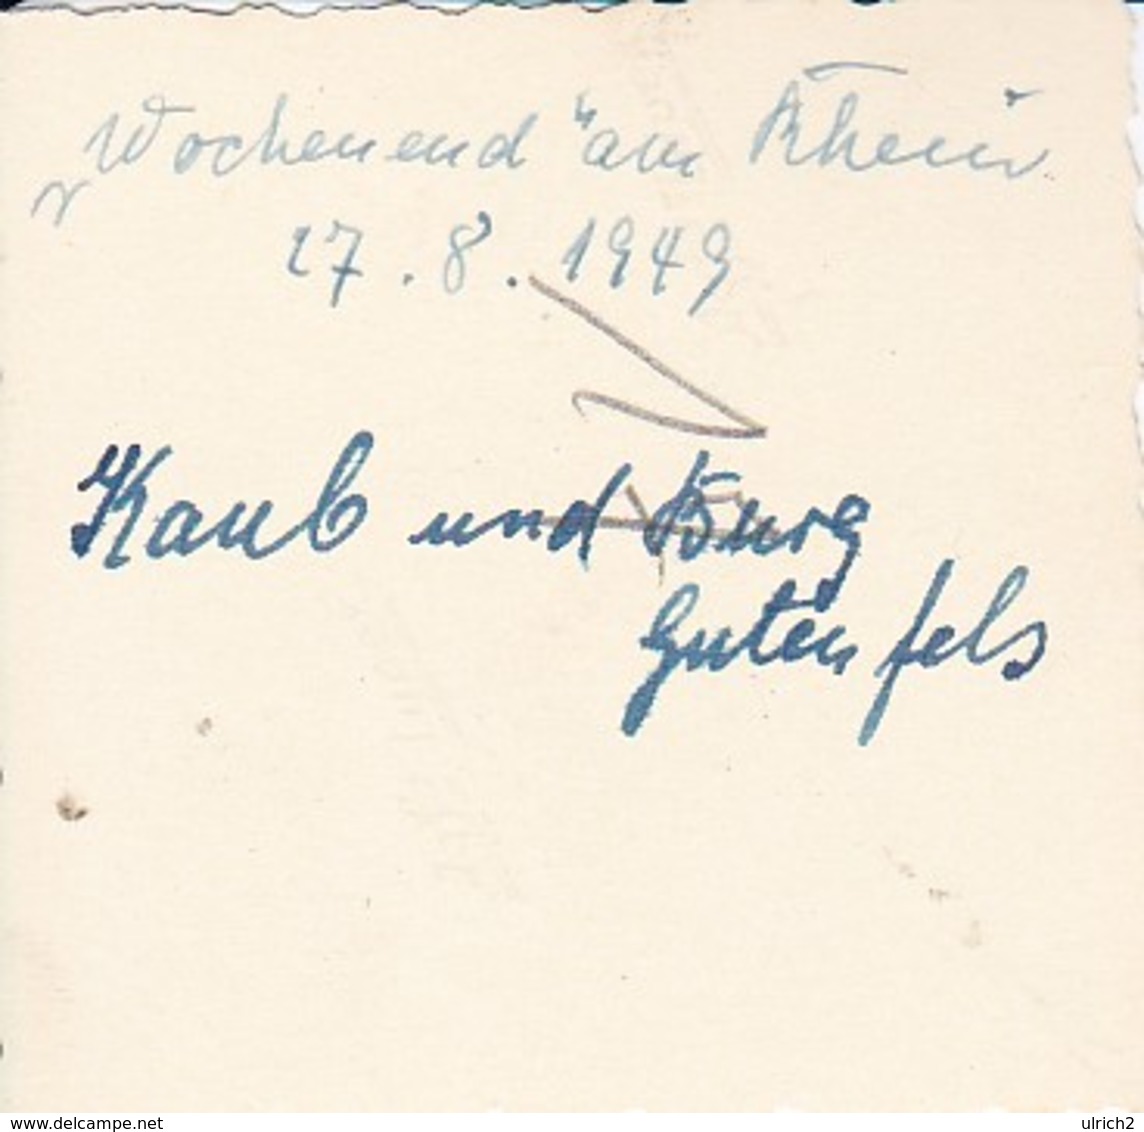 „Wochenend" am Rhein
27.8.1949
Kaub und Burg
Gutenfels
www.delcampe.net
ulrich2